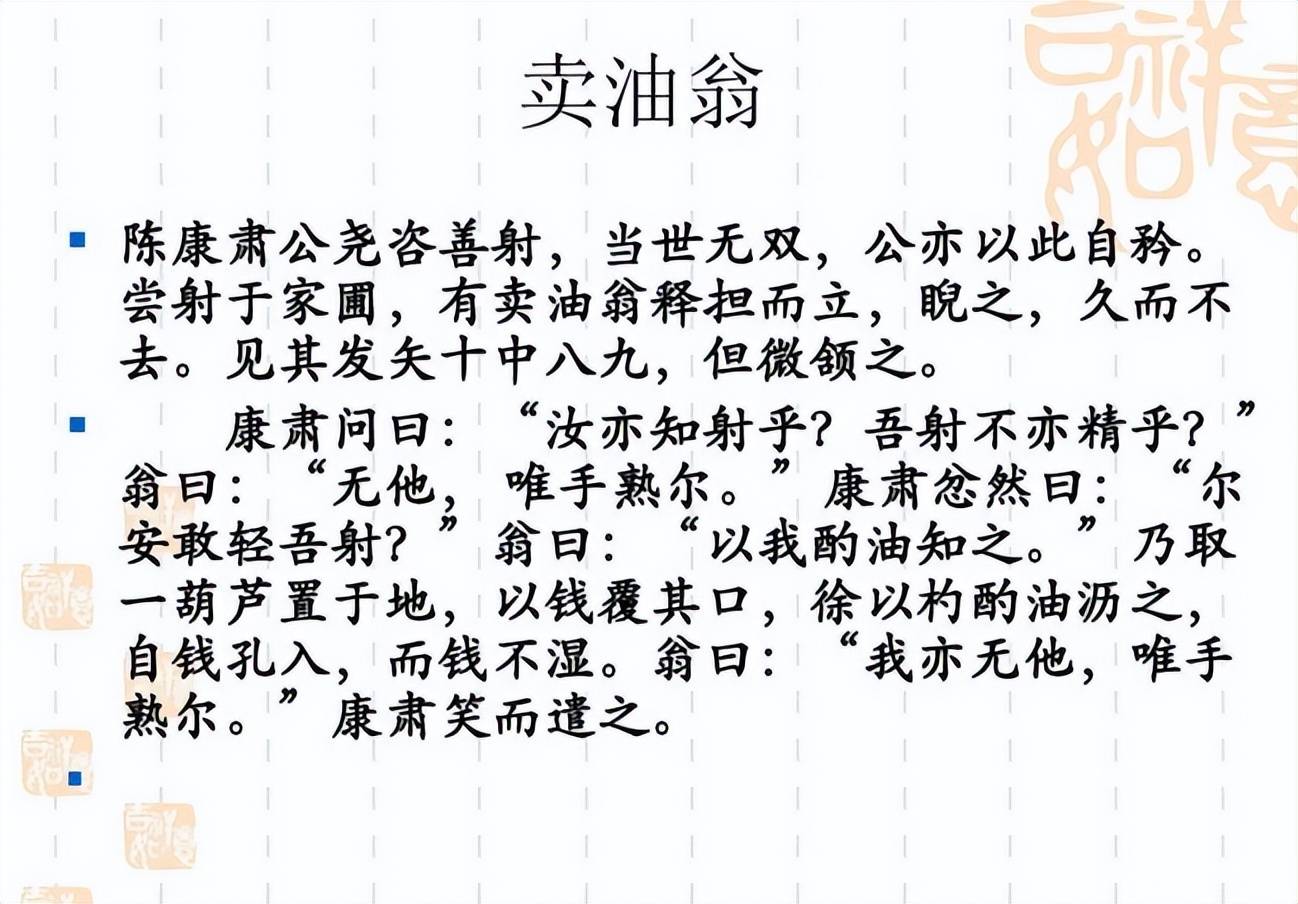 卖油翁
陈康肃公尧咨善射，当世无双，公亦以此自矜。
尝射于家圃，有卖油翁释担而立，睨之，久而不
去。见其发矢十中八九，但微颔之。
康肃问曰：“汝亦知射乎？吾射不亦精乎？”
翁曰：“无他，唯手熟尔。”康肃忿然曰：“尔
安敢轻吾射？”翁曰：“以我酌油知之。”乃取
一葫芦置于地，以钱覆其口，徐以杓酌油沥之，
自钱孔入，而钱不湿。翁曰：“我亦无他，唯手
熟尔。”康肃笑而遣之。
吉祥如意